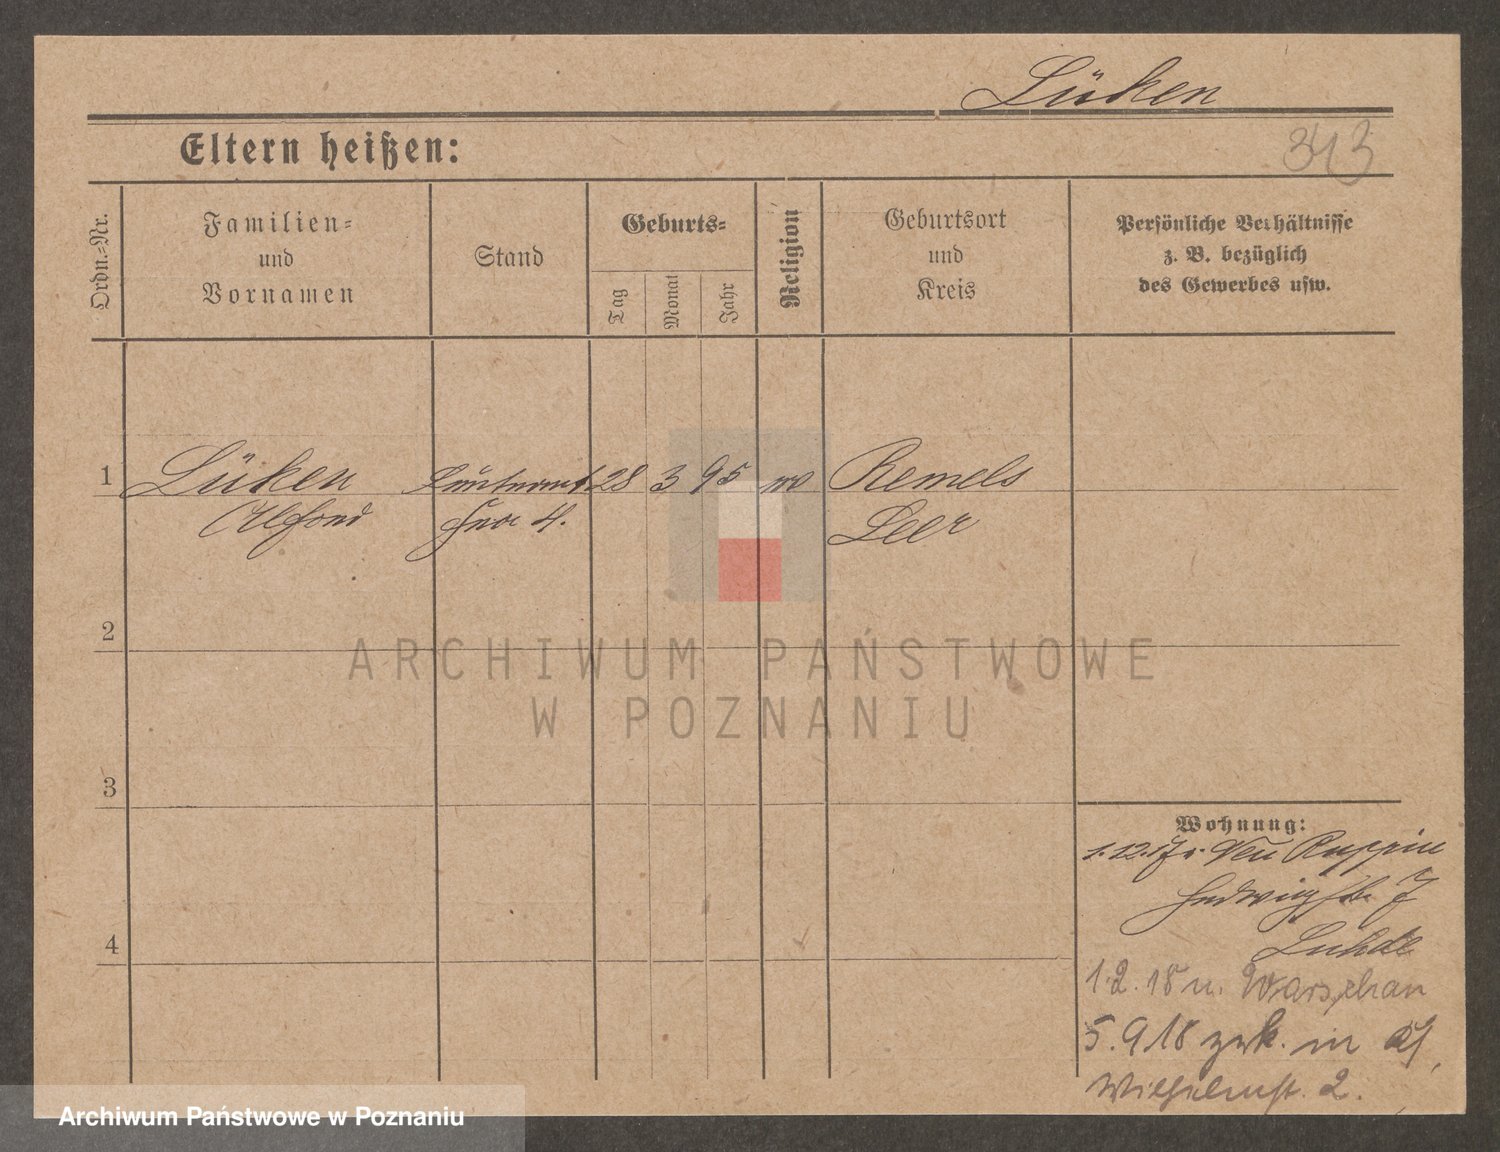 Lüken
Eltern heißen:
343
Ordn.-Nr.
Familien-
und
Vornamen
Stand
Geburts-
Tag
Monat
Jahr
Religion
Geburtsort
und
Kreis
Persönliche Verhältnisse
z. B. bezüglich
des Gewerbes usw.
1 Lüken 28 3 95 Remels
4. Leer
2
3
4
Wohnung:
1.12.17 v. Neu Ruppin
1.2.18 n. Warschau
5.9.18 zrk. in
Wilhelmst. 2.
ARCHIWUM PAŃSTWOWE
W POZNANIU
Archiwum Państwowe w Poznaniu